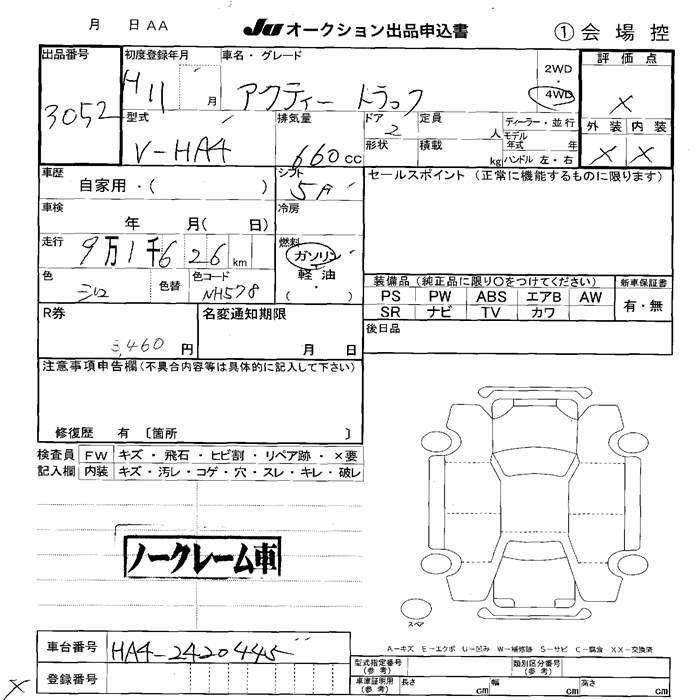 月 日 AA
JU オークション出品申込書
① 会場控
出品番号
3052
初度登録年月
H11 月
車名・グレード
アクティー トラック
2WD
・
4WD
評価点
X
外装 内装
X X
型式
V-HA4
排気量
660 cc
ドア
2
定員
人
ディーラー・並行
モデル年式 年
形状
積載
kg
ハンドル 左・右
車歴
自家用・( )
シフト
5F
セールスポイント (正常に機能するものに限ります)
車検
年 月( 日)
冷房
走行
9万1千626 km
燃料
ガソリン
軽油
( )
色
色替
色コード
NH578
装備品(純正品に限り○をつけてください)
新車保証書
PS PW ABS エアB AW
有・無
SR ナビ TV カワ
R券
3,460 円
名変通知期限
月 日
後日品
注意事項申告欄(不具合内容等は具体的に記入して下さい)
修復歴 有 〔箇所 〕
検査員 FW キズ・飛石・ヒビ割・リペア跡・×要
記入欄 内装 キズ・汚レ・コゲ・穴・スレ・キレ・破レ
ノークレーム車
スペア
A-キズ E-エクボ U-凹み W-補修跡 S-サビ C-腐食 XX-交換済
車台番号
HA4-2420445
登録番号
型式指定番号
(参考)
類別区分番号
(参考)
車庫証明用
(参考)
長さ cm
幅 cm
高さ cm
X